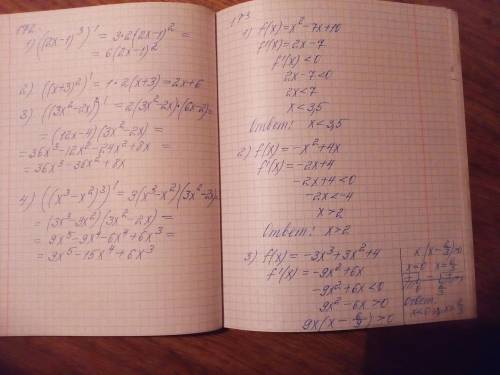 172.
1) ((2x-1)³)' = 3·2(2x-1)² =
= 6(2x-1)²
2) ((x+3)²)' = 1·2(x+3) = 2x+6
3) ((3x²-2x)²)' = 2(3x²-2x)·(6x-2) =
= (12x-4)(3x²-2x) =
= 36x³-12x²-24x²+8x =
= 36x³-36x²+8x
4) ((x³-x²)³)' = 3(x³-x²)(3x²-2x) =
= (3x³-3x²)(3x²-2x) =
= 9x⁵-9x⁴-6x⁴+6x³ =
= 9x⁵-15x⁴+6x³
173
1) f(x) = x²-7x+10
f'(x) = 2x-7
f'(x) < 0
2x-7<0
2x<7
x<3,5
Ответ: x<3,5
2) f(x) = -x²+4x
f'(x) = -2x+4
-2x+4<0
-2x<-4
x>2
Ответ: x>2
3) f(x) = -3x³+3x²+4
f'(x) = -9x²+6x
-9x²+6x<0
9x²-6x>0
9x(x-6/9)>0
x(x-6/9)>0
x=0 x=6/9
Ответ: